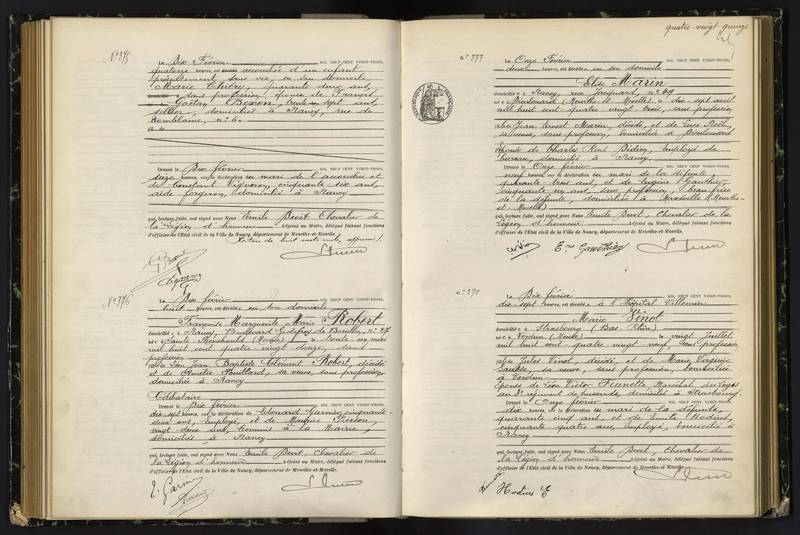 N° 375
Le Dix Février MIL NEUF CENT VINGT-TROIS,
quatorze heures, est accouchée d'un enfant
présentement sans vie, en son domicile
Marie Thiéry, quarante deux ans,
sans profession, épouse de François
Gaëtan Bozon, trente sept ans,
sellier, domiciliés à Nancy, rue de
n° 6.
Dressé le Dix février MIL NEUF CENT VINGT-TROIS,
seize heures, sur la déclaration du mari de l'accouchée et
de Constant Vigneron, cinquante six ans,
aide forgeron, domicilié à Nancy
qui, lecture faite, ont signé avec Nous Emile Devit Chevalier de
la Légion d'honneur Adjoint au Maire, délégué faisant fonctions
d'officier de l'Etat civil de la Ville de Nancy, département de Meurthe-et-Moselle.
de huit mots nuls, approuvé.
N° 376
Le Dix février MIL NEUF CENT VINGT-TROIS,
huit heures, est décédée en son domicile
Françoise Marguerite Marie Robert
domiciliée à Nancy, Boulevard Godefroy de Bouillon, n° 27
née à Sainte Menehould (Marne) le trente un mars
mil huit cent quatre-vingt douze, sans
profession
fille de Léon Jean Baptiste Clément Robert, décédé
et de Amélie sa veuve, sans profession,
domiciliée à Nancy
Célibataire
Dressé le Dix février MIL NEUF CENT VINGT-TROIS,
dix sept heures, sur la déclaration de Léonard Garnier, cinquante
deux ans, employé et de Maurice
vingt deux ans, commis à la Mairie,
domiciliés à Nancy
qui, lecture faite, ont signé avec Nous Emile Devit, Chevalier de
la Légion d'honneur Adjoint au Maire, délégué faisant fonctions
d'officier de l'Etat civil de la Ville de Nancy, département de Meurthe-et-Moselle.
quatre-vingt quinze
N° 377
Le Onze Février MIL NEUF CENT VINGT-TROIS,
deux heures, est décédée en son domicile
Elise Marin
domiciliée à Nancy, rue Jacquard, n° 29
née à Dieulouard Meurthe et Moselle le dix sept avril
mil huit cent quatre vingt trois, sans profession
fille de Jean Ernest Marin, décédé, et de Lucie Noël,
sa veuve, sans profession, domiciliée à Dieulouard
Epouse de Charles René Bédin, Employé de
bureau, domicilié à Nancy.
Dressé le Onze février MIL NEUF CENT VINGT-TROIS,
neuf heures, sur la déclaration du mari de la défunte,
quarante trois ans, et de Eugène Gauthier,
cinquante un ans, sans profession, beau frère
de la défunte, domicilié à Maxéville Meurthe-
et Moselle
qui, lecture faite, ont signé avec Nous Emile Devit, Chevalier de la
Légion d'honneur Adjoint au Maire, délégué faisant fonctions
d'officier de l'Etat civil de la Ville de Nancy, département de Meurthe-et-Moselle.
N° 378
Le Dix février MIL NEUF CENT VINGT-TROIS,
dix sept heures, est décédée à l'Hôpital Villemin
Marie Vinot
domiciliée à Strasbourg (Bas Rhin)
née à Verdun (Meuse) le vingt Juillet
mil huit cent quatre vingt neuf, sans profession
fille de Jules Vinot, décédé, et de Marie Virginie
sa veuve, sans profession, domiciliée
à Verdun
Epouse de Léon Victor Maréchal des Logis
au 3e régiment de hussards, domicilié à Strasbourg.
Dressé le Onze février MIL NEUF CENT VINGT-TROIS,
dix heures, sur la déclaration du mari de la défunte,
quarante cinq ans, et de Emile Hodius,
cinquante quatre ans, employé, domicilié à
Nancy
qui, lecture faite, ont signé avec Nous Emile Devit, Chevalier de
la Légion d'honneur Adjoint au Maire, délégué faisant fonctions
d'officier de l'Etat civil de la Ville de Nancy, département de Meurthe-et-Moselle.
Hodius E